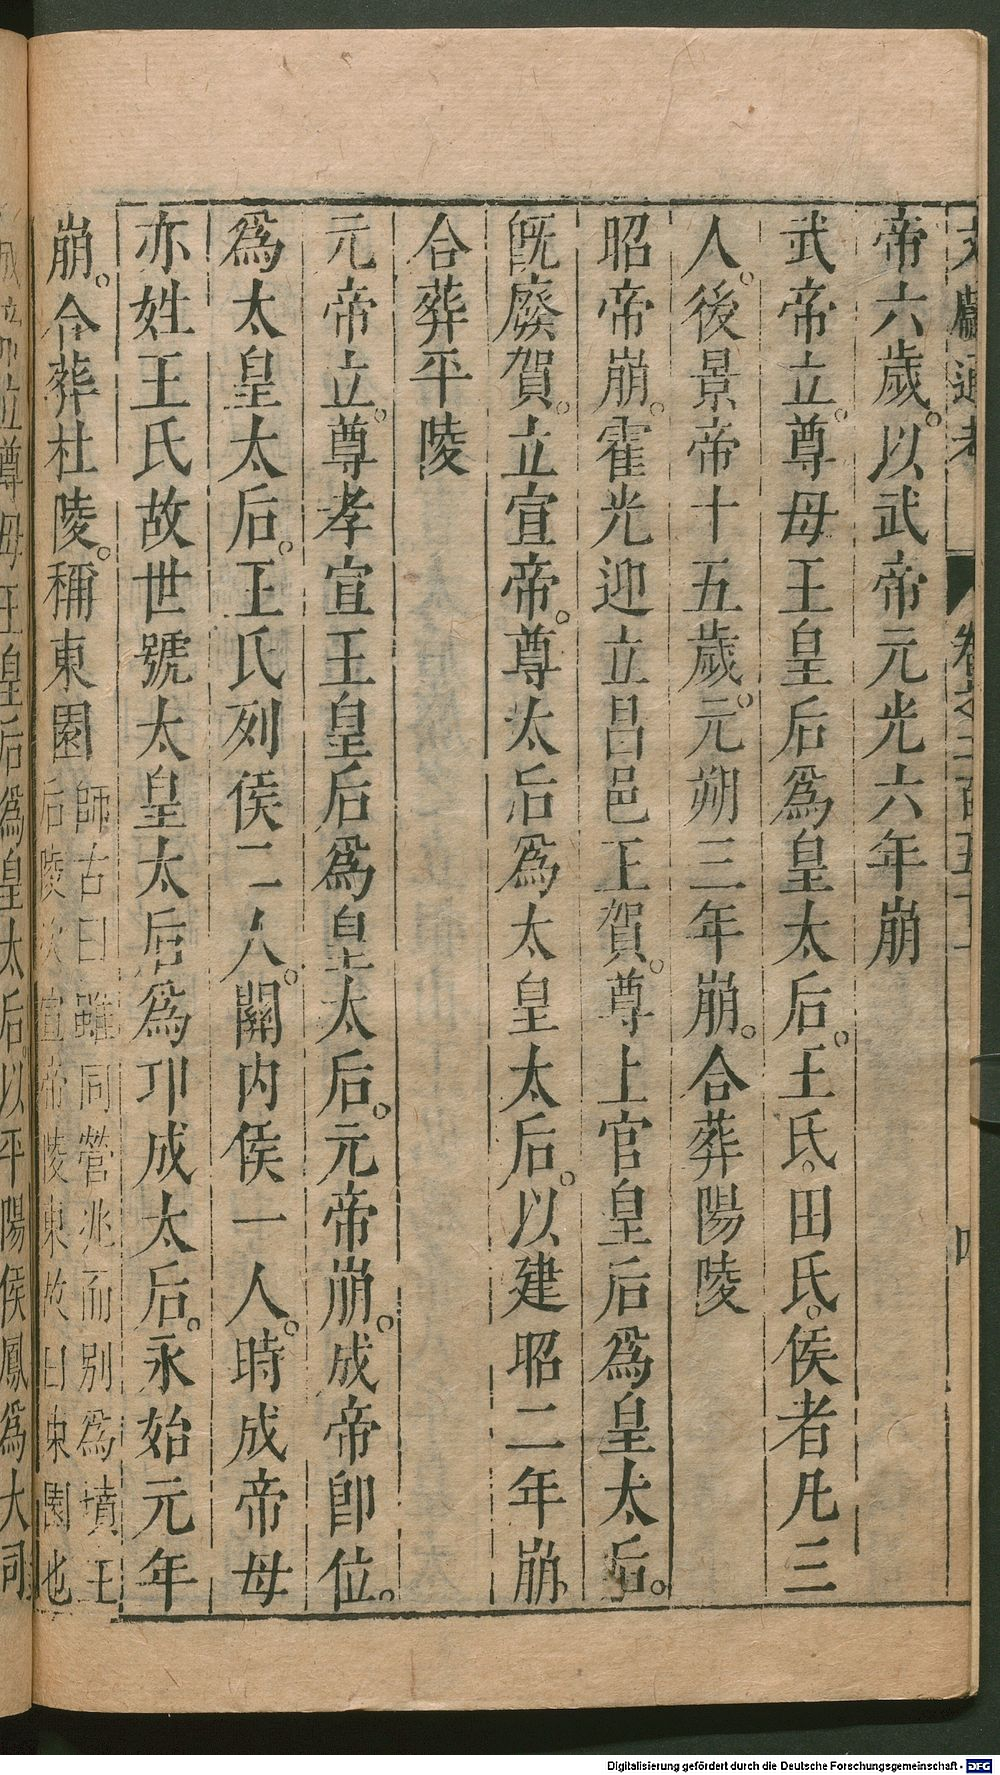 文獻通考 卷之二百五十二
帝六歲。以武帝元光六年崩
武帝立。尊母王皇后爲皇太后。王氏。田氏。侯者凡三
人。後景帝十五歲。元朔三年崩。合葬陽陵
昭帝崩。霍光迎立昌邑王賀。尊上官皇后爲皇太后。
旣廢賀。立宣帝。尊太后爲太皇太后。以建昭二年崩
合葬平陵
元帝立。尊孝宣王皇后爲皇太后。元帝崩。成帝卽位。
爲太皇太后。王氏列侯二人。關内侯一人。時成帝母
亦姓王氏故世號太皇太后爲卭成太后。永始元年
崩。合葬杜陵。稱東園
師古曰雖同營兆而別爲墳王
后陵次宣帝陵東故曰東園也
位尊母王皇后爲皇太后。以平陽侯鳳爲大司
Digitalisierung gefördert durch die Deutsche Forschungsgemeinschaft - DFG